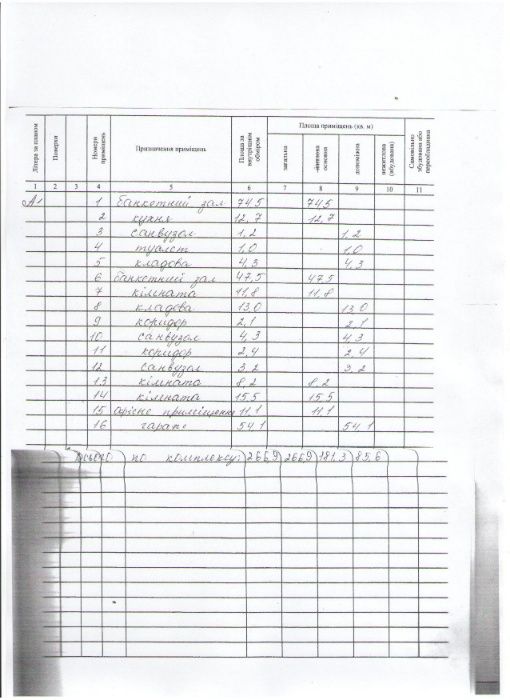 Літера за планом | Поверхи | | Номери приміщень | Призначення приміщень | Площа за внутрішнім обміром | Площа приміщень (кв. м) | Самовільно збудована або переобладнана
загальна | основна | допоміжна | нежитлова (вбудована)
1 2 3 4 5 6 7 8 9 10 11
А 1 банкетний зал 74,5 74,5
2 кухня 12,7 12,7
3 санвузол 1,2 1,2
4 туалет 1,0 1,0
5 кладова 4,3 4,3
6 банкетний зал 47,5 47,5
7 кімната 11,8 11,8
8 кладова 13,0 13,0
9 коридор 2,1 2,1
10 санвузол 4,3 4,3
11 коридор 2,4 2,4
12 санвузол 3,2 3,2
13 кімната 8,2 8,2
14 кімната 15,5 15,5
15 офісне приміщення 11,1 11,1
16 гараж 54,1 54,1
по комплексу: 266,9 266,9 181,3 85,6